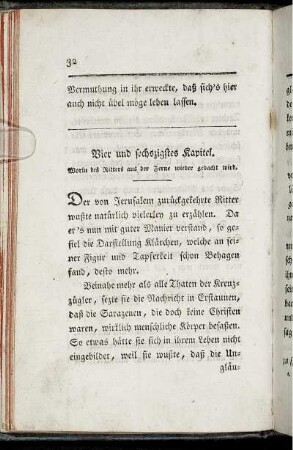 32
Vermuthung in ihr erweckte, daß sich's hier
auch nicht übel möge leben lassen.
Vier und sechszigstes Kapitel.
Worin des Ritters aus der Ferne wieder gedacht wird.
Der von Jerusalem zurückgekehrte Ritter
wußte natürlich vielerley zu erzählen. Da
er's nun mit guter Manier verstand, so ge-
fiel die Darstellung Klärchen, welche an sei-
ner Figur und Tapferkeit schon Behagen
fand, desto mehr.
Beinahe mehr als alle Thaten der Kreuz-
zügler, sezte sie die Nachricht in Erstaunen,
daß die Sarazenen, die doch keine Christen
waren, wirklich menschliche Körper besaßen.
So etwas hätte sie sich in ihrem Leben nicht
eingebildet, weil sie wußte, daß die Un-
gläu-